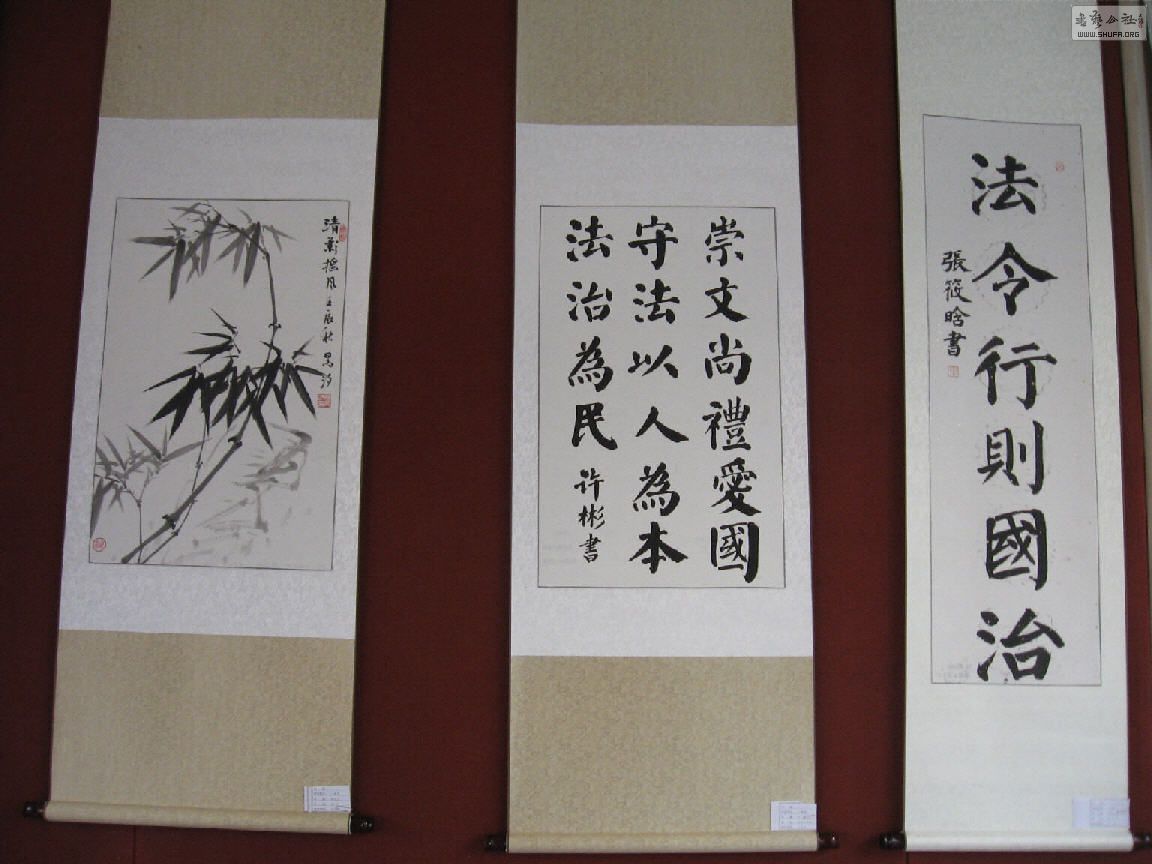 崇文尚禮愛國
守法以人為本
法治為民
许彬書
法令行則國治
張筱晗書
清影搖风 壬辰秋
書藝公社
WWW.SHUFA.ORG